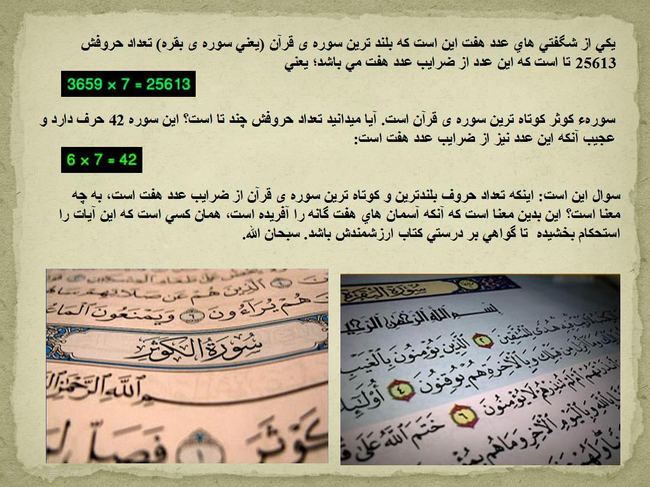 يكي از شگفتي هاي عدد هفت اين است كه بلند ترين سوره ى قرآن (يعني سوره ى بقره) تعداد حروفش
25613 تا است كه اين عدد از ضرايب عدد هفت مي باشد؛ يعني
3659 × 7 = 25613
سورهء كوثر كوتاه ترين سوره ى قرآن است. آيا ميدانيد تعداد حروفش چند تا است؟ اين سوره 42 حرف دارد و
عجيب آنكه اين عدد نيز از ضرايب عدد هفت است:
6 × 7 = 42
سوال اين است: اينكه تعداد حروف بلندترين و كوتاه ترين سوره ى قرآن از ضرايب عدد هفت است، به چه
معنا است؟ اين بدين معنا است كه آنكه آسمان هاي هفت گانه را آفريده است، همان كسي است كه اين آيات را
استحكام بخشيده تا گواهي بر درستي كتاب ارزشمندش باشد. سبحان الله.
الَّذِينَ هُمْ عَن صَلَاتِهِمْ
هُمْ يُرَاءُونَ ٦ وَيَمْنَعُونَ الْمَاعُ
سُورَةُ الْكَوْثَرِ
اللَّهِ الرَّحْمَٰنِ
كَوْثَرَ ١ فَصَلِّ لِرَ
سُورَةُ الْبَقَرَةِ
بِسْمِ اللَّهِ الرَّحْمَٰنِ الرَّحِيمِ
هُدًى لِّلْمُتَّقِينَ ٢ الَّذِينَ يُؤْمِنُونَ بِالْغَيْبِ
وَبِالْآخِرَةِ هُمْ يُوقِنُونَ ٤ أُولَٰئِ
لَا يُؤْمِنُونَ ٦ خَتَمَ اللَّهُ عَلَىٰ